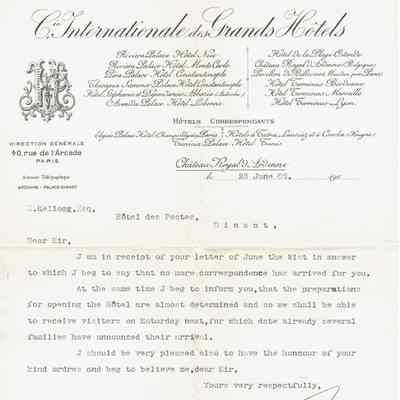 Cie Internationale des Grands Hôtels
Riviera Palace Hôtel, Nice
Riviera Palace Hôtel, Monte Carlo
Pera Palace Hôtel Constantinople
Therapia Summer Palace Hôtel Constantinople
Hôtel Stéphanie et Dépendances Abbazia
Avenida Palace Hôtel Lisbonne
Hôtel de la Plage Ostende
Château Royal d'Ardenne (Belgique)
Pavillon de Bellevue Meudon près Paris
Hôtel Terminus Bordeaux
Hôtel Terminus Marseille
Hôtel Terminus Lyon
HÔTELS CORRESPONDANTS
Elysée Palace Hôtel Champs Elysées Paris
Tunisia Palace Hôtel Tunis
DIRECTION GÉNÉRALE
40, rue de l'Arcade
PARIS
Adresse Télégraphique
ARDENNE - PALACE - DINANT
Château Royal d'Ardenne
le 23 June 190
Kellogg, Esq.
Hôtel des Postes,
Dinant.
Dear Sir,
J am in receipt of your letter of June the 21st in answer
to which J beg to say that no more correspondence has arrived for you.
At the same time J beg to inform you, that the preparations
for opening the Hôtel are almost determined and so we shall be able
to receive visitors on Saturday next, for which date already several
families have announced their arrival.
J should be very pleased also to have the honour of your
kind ordres and beg to believe me, dear Sir,
Yours very respectfully.